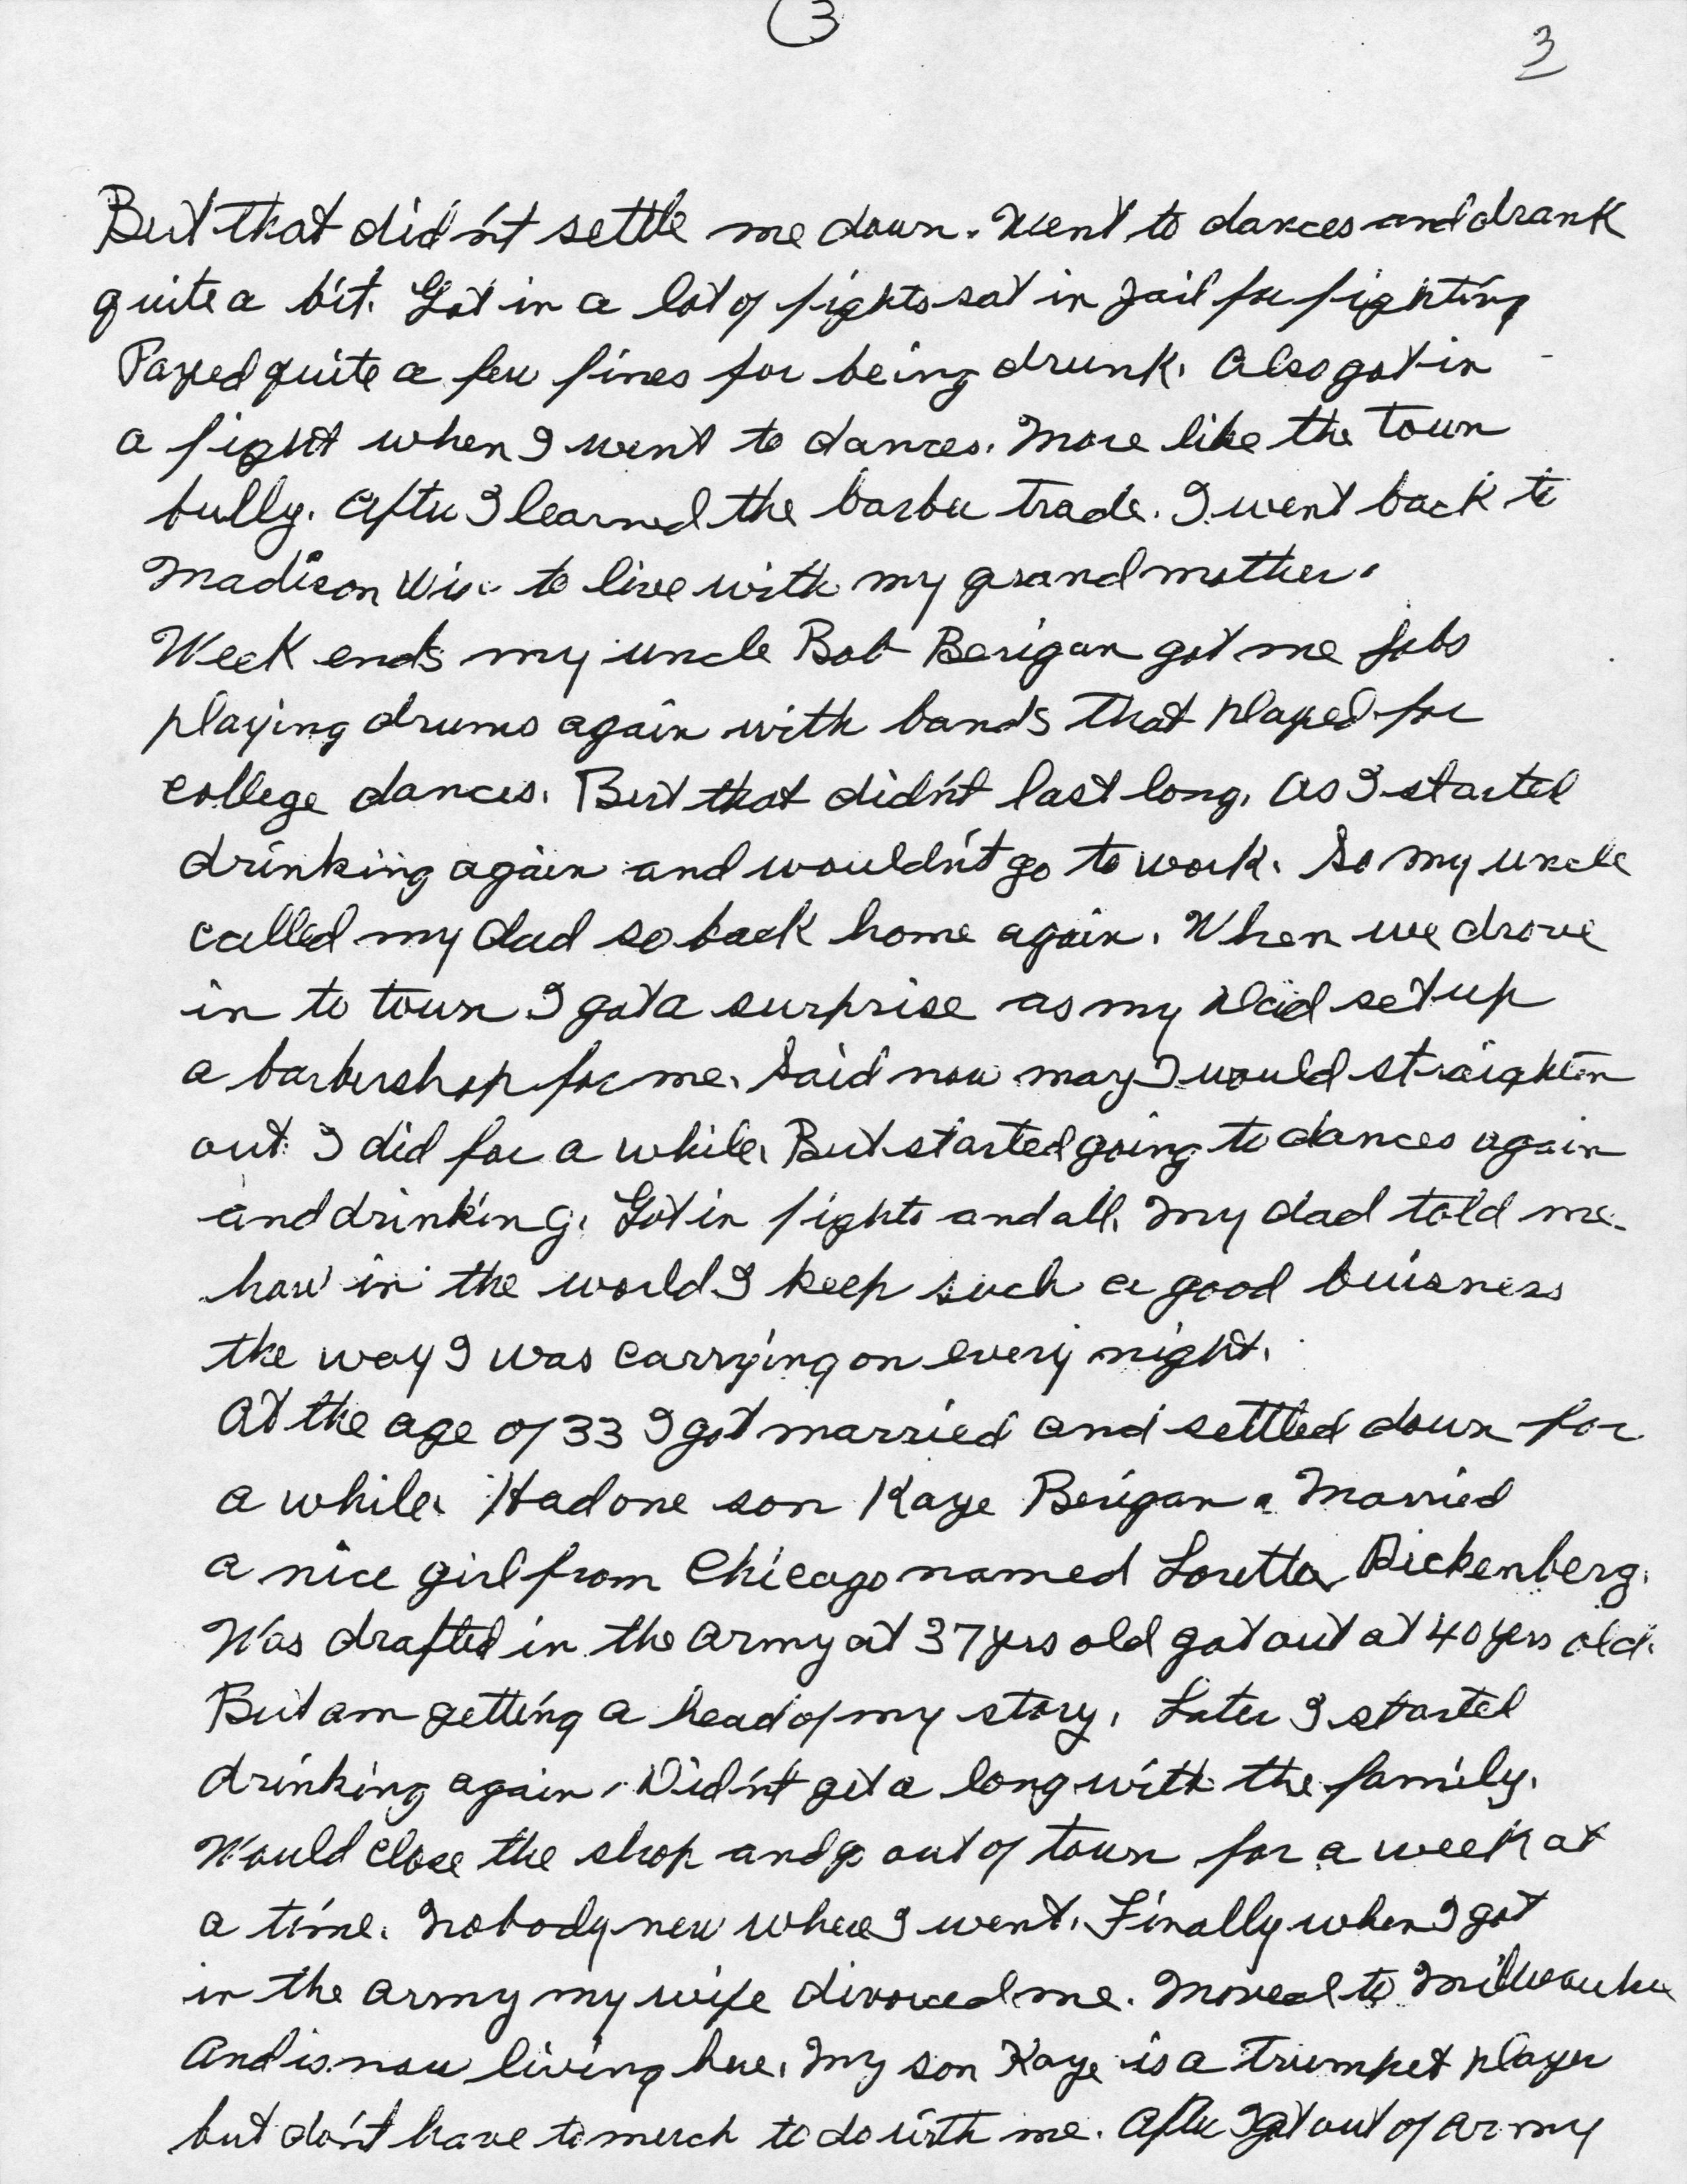 3
3
But that did'nt settle me down. Went to dances and drank
quite a bit. Got in a lot of fights sat in jail for fighting
Payed quite a few fines for being drunk. Also got in
a fight when I went to dances. More like the town
bully. After I learned the barber trade. I went back to
Madison Wis. to live with my grand mother.
Week ends my uncle Bob Berigan got me jobs
playing drums again with bands that played for
college dances. But that did'nt last long. As I started
drinking again and would'nt go to work. So my uncle
called my dad so back home again. When we drove
in to town I got a surprise as my Dad set up
a barbershop for me. Said now may I would straighten
out I did for a while. But started going to dances again
and drinking. Got in fights and all. My dad told me
how in the world I keep such a good buisness
the way I was carrying on every night.
At the age of 33 I got married and settled down for
a while. Had one son Kaye Berigan. Married
a nice girl from Chicago named Loretta Rickenberg.
Was drafted in the army at 37 yrs old got out at 40 yrs old.
But am getting a head of my story. Later I started
drinking again. Did'nt get a long with the family.
Would close the shop and go out of town for a week at
a time. Nobody new where I went. Finally when I got
in the army my wife divorced me. Moved to Milwaukee
And is now living here. My son Kaye is a trumpet player
but do'nt have to much to do with me. After I got out of army